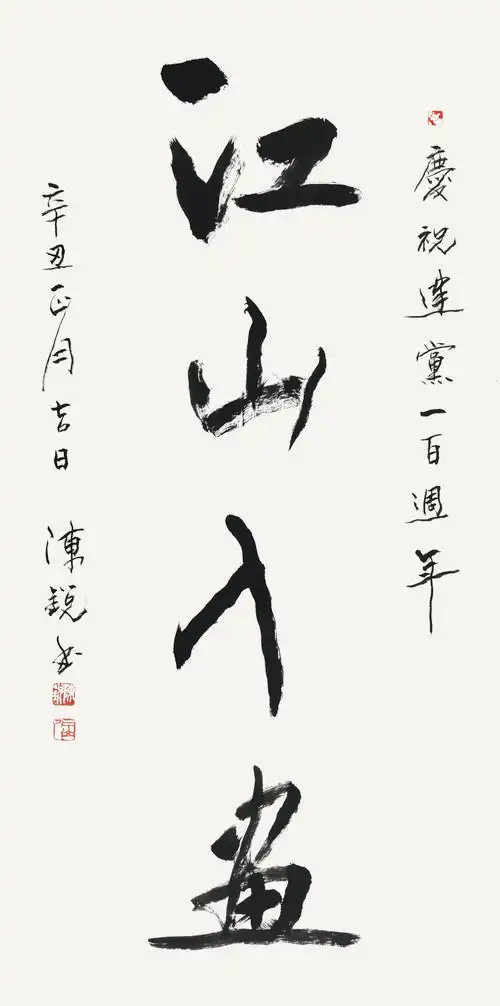 慶祝建黨一百週年
江山入畫
辛丑正月吉日 陳銳書